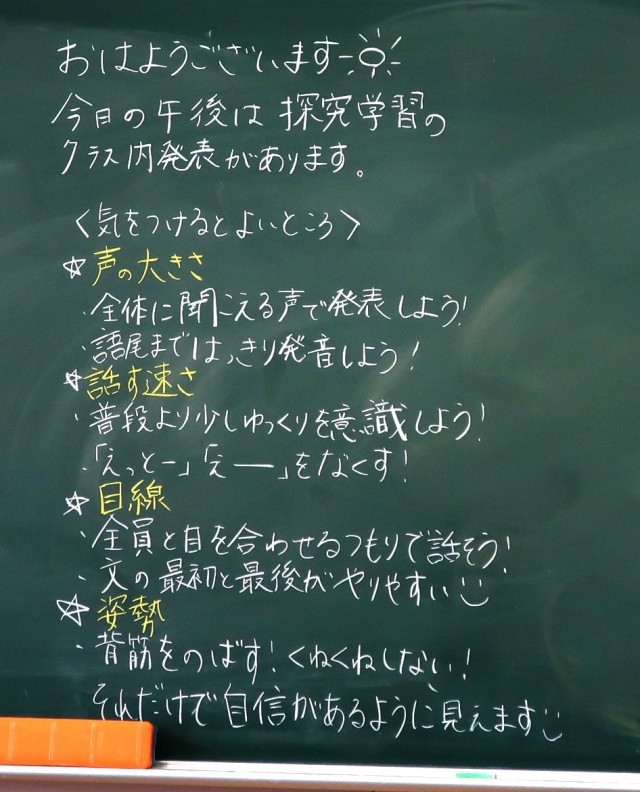 おはようございます
今日の午後は探究学習の
クラス内発表があります。
〈気をつけるとよいところ〉
☆声の大きさ
・全体に聞こえる声で発表しよう!
・語尾まではっきり発音しよう!
☆話す速さ
・普段より少しゆっくりを意識しよう!
・「えっとー」「えー」をなくす!
☆目線
・全員と目を合わせるつもりで話そう!
・文の最初と最後がやりやすい
☆姿勢
・背筋をのばす!くねくねしない!
それだけで自信があるように見えます